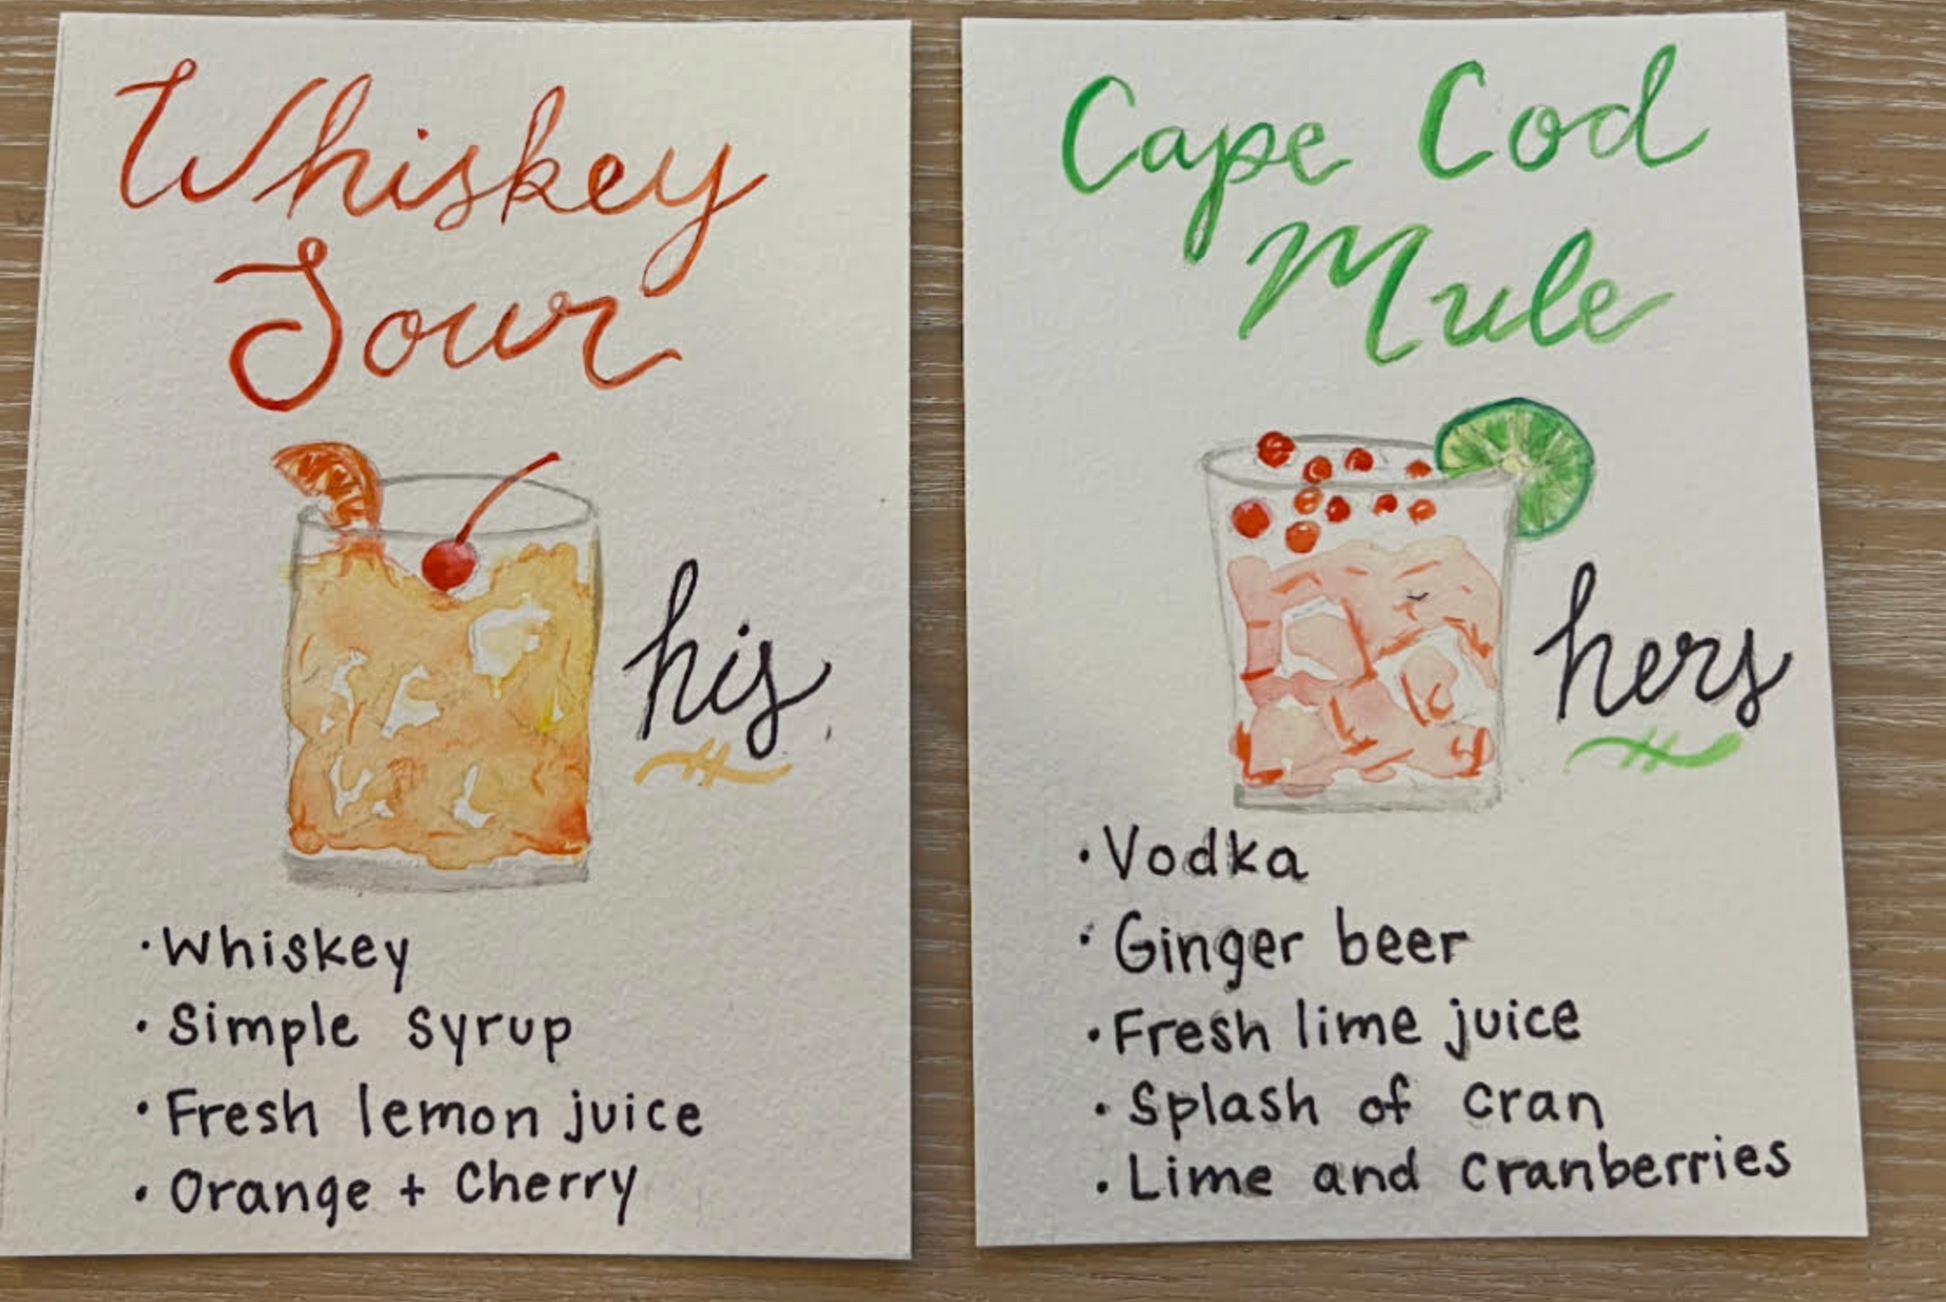 Whiskey
Sour
his
• Whiskey
• Simple syrup
• Fresh lemon juice
• Orange + Cherry
Cape Cod
Mule
hers
• Vodka
• Ginger beer
• Fresh lime juice
• Splash of cran
• Lime and cranberries